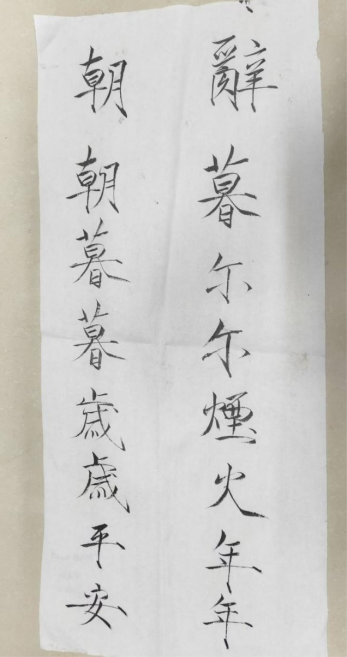 辭暮尓尓煙火年年
朝朝暮暮歲歲平安